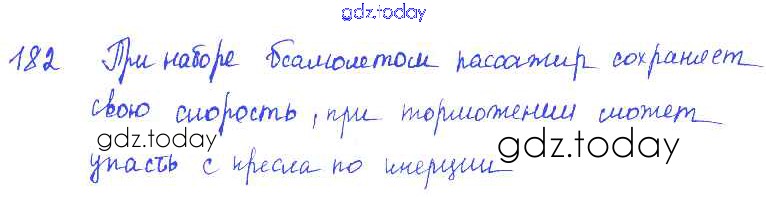 gdz.today
182 При наборе самолетом пассажир сохраняет
свою скорость, при торможении может
gdz.today
упасть с кресла по инерции gdz.today